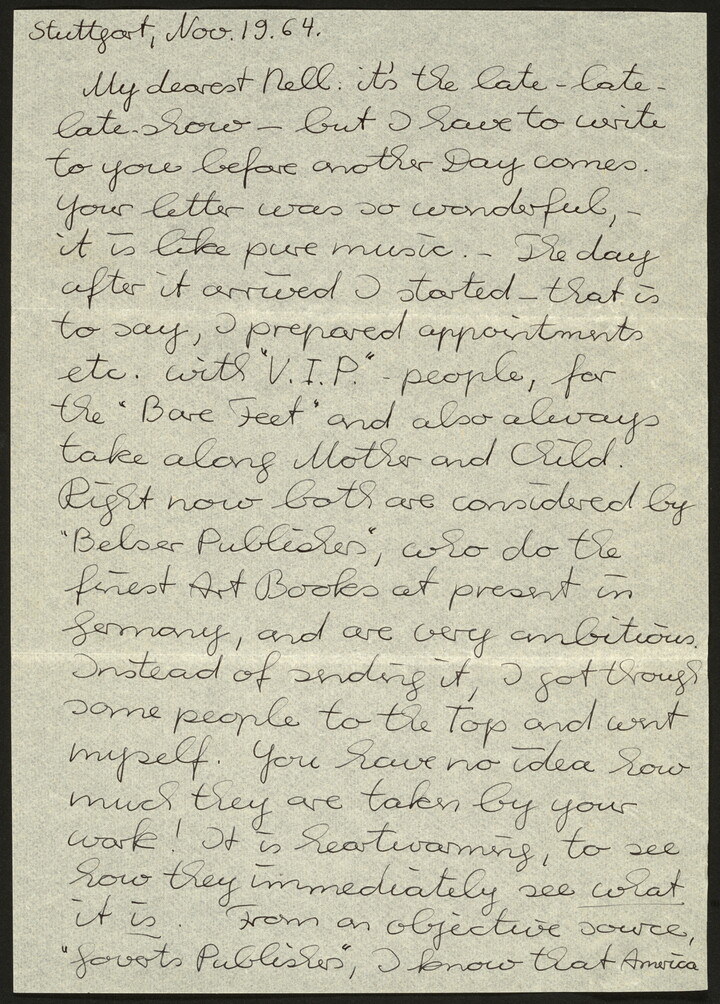 Stuttgart, Nov. 19. 64.
My dearest Nell: it's the late - late -
late-show — but I have to write
to you before another Day comes.
Your letter was so wonderful, -
it is like pure music. - The day
after it arrived I started - that is
to say, I prepared appointments
etc. with "V.I.P." - people, for
the "Bare Feet" and also always
take along Mother and Child.
Right now both are considered by
"Belser Publishers", who do the
finest Art Books at present in
Germany, and are very ambitious.
Instead of sending it, I got through
some people to the Top and went
myself. You have no idea how
much they are taken by your
work! It is heartwarming, to see
how they immediately see what
it is. From an objective source,
"Goverts Publishers", I know that America